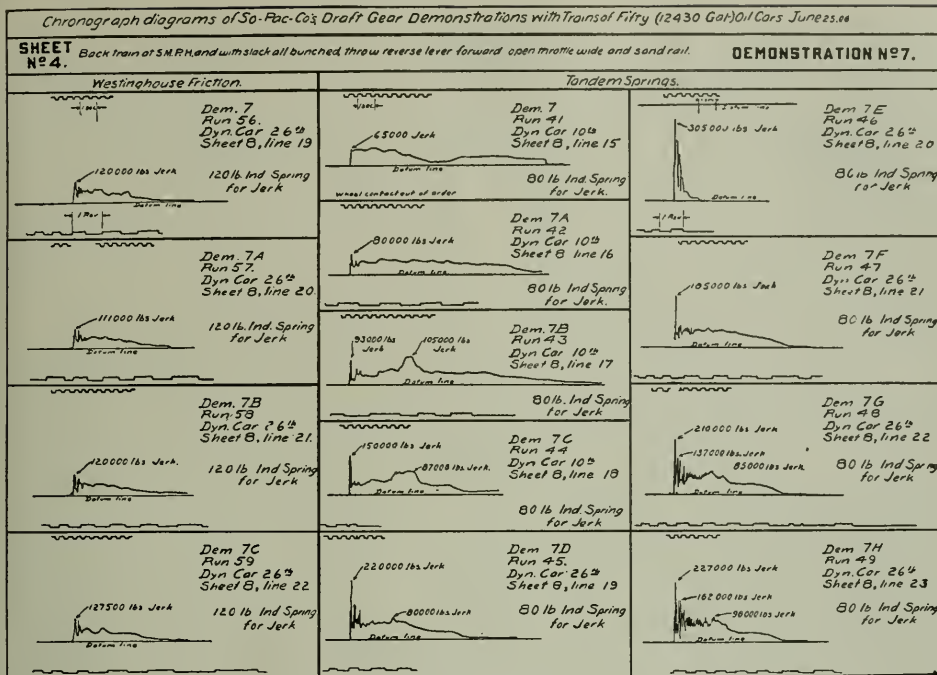 Chronograph diagrams of So-Pac-Co's Draft Gear Demonstrations with Trains of Fifty (12430 Gal) Oil Cars June 25.08
SHEET Nº 4.
Back train at 5 M.P.H. and with slack all bunched, throw reverse lever forward open throttle wide and sand rail.
DEMONSTRATION Nº 7.
Westinghouse Friction.
Tandem Springs.
1 sec
Dem. 7
Run 56.
Dyn. Car 26th
Sheet 8, line 19
120000 lbs Jerk
120 lb Ind Spring
for Jerk
Datum line
1 Rev
Dem. 7A
Run 57.
Dyn Car 26th
Sheet 8, line 20
111000 lbs Jerk
120 lb. Ind Spring
for Jerk
Datum line
Dem. 7B
Run 58
Dyn. Car 26th
Sheet 8, line 21.
120000 lbs Jerk.
120 lb Ind Spring
for Jerk
Datum line
Dem 7C
Run 59
Dyn Car 26th
Sheet 8, line 22
127500 lbs Jerk
120 lb Ind Spring
for Jerk
Datum line
1 sec
Dem. 7
Run 41
Dyn. Car 10th
Sheet 8, line 15
65000 Jerk
Datum line
80 lb Ind. Spring
for Jerk.
wheel contact out of order
Dem 7A
Run 42
Dyn Car 10th
Sheet 8 line 16
80000 lbs Jerk
Datum line
80 lb Ind Spring
for Jerk.
Dem. 7B
Run 43
Dyn Car 10th
Sheet 8, line 17
93000 lbs Jerk
105000 lbs Jerk
Datum line
80 lb. Ind Spring
for Jerk
Dem 7C
Run 44
Dyn Car 10th
Sheet 8, line 18
150000 lbs Jerk
87000 lbs Jerk.
Datum line
80 lb Ind Spring
for Jerk
Dem 7D
Run 45.
Dyn. Car 26th
Sheet 8, line 19
220000 lbs Jerk
80000 lbs Jerk
80 lb Ind Spring
for Jerk
Datum line
Datum line
Dem 7E
Run 46
Dyn. Car 26th
Sheet 8, line 20
305000 lbs Jerk
86 lb Ind Spring
for Jerk
Datum line
1 Rev
Dem 7F
Run 47
Dyn Car 26th
Sheet 8, line 21
185000 lbs Jerk
80 lb Ind Spring
for Jerk
Datum line
Dem 7G
Run 48
Dyn Car 26th
Sheet 8, line 22
210000 lbs Jerk
137000 lbs Jerk
85000 lbs Jerk.
80 lb Ind Spring
for Jerk
Datum line
Dem. 7H
Run 49
Dyn. Car 26th
Sheet 8, line 23
227000 lbs Jerk
162000 lbs Jerk
98000 lbs Jerk
80 lb Ind Spring
for Jerk
Datum line